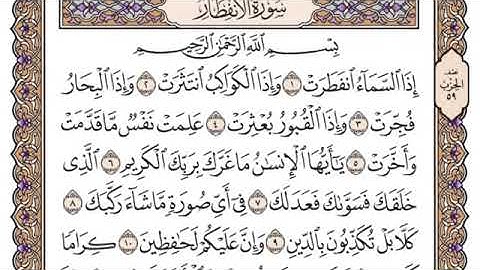 سُورَةُ الْانْفِطَارِ
بِسْمِ اللَّهِ الرَّحْمَٰنِ الرَّحِيمِ
إِذَا السَّمَاءُ انفَطَرَتْ ١ وَإِذَا الْكَوَاكِبُ انتَثَرَتْ ٢ وَإِذَا الْبِحَارُ
فُجِّرَتْ ٣ وَإِذَا الْقُبُورُ بُعْثِرَتْ ٤ عَلِمَتْ نَفْسٌ مَّا قَدَّمَتْ
وَأَخَّرَتْ ٥ يَٰأَيُّهَا الْإِنسَٰنُ مَا غَرَّكَ بِرَبِّكَ الْكَرِيمِ ٦ الَّذِي
خَلَقَكَ فَسَوَّىٰكَ فَعَدَلَكَ ٧ فِي أَيِّ صُورَةٍ مَّا شَاءَ رَكَّبَكَ ٨
كَلَّا بَلْ تُكَذِّبُونَ بِالدِّينِ ٩ وَإِنَّ عَلَيْكُمْ لَحَٰفِظِينَ ١٠ كِرَامًا
الحِزْب
٥٩